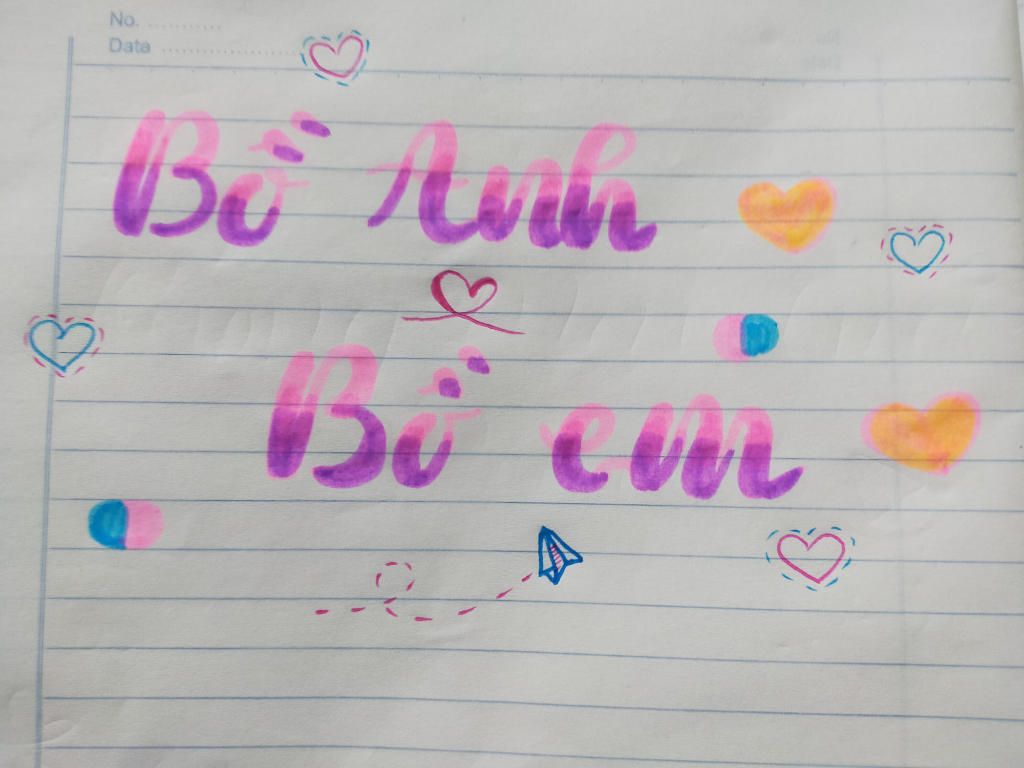 No. ...........
Date ......................
Bồ Anh
Bồ em